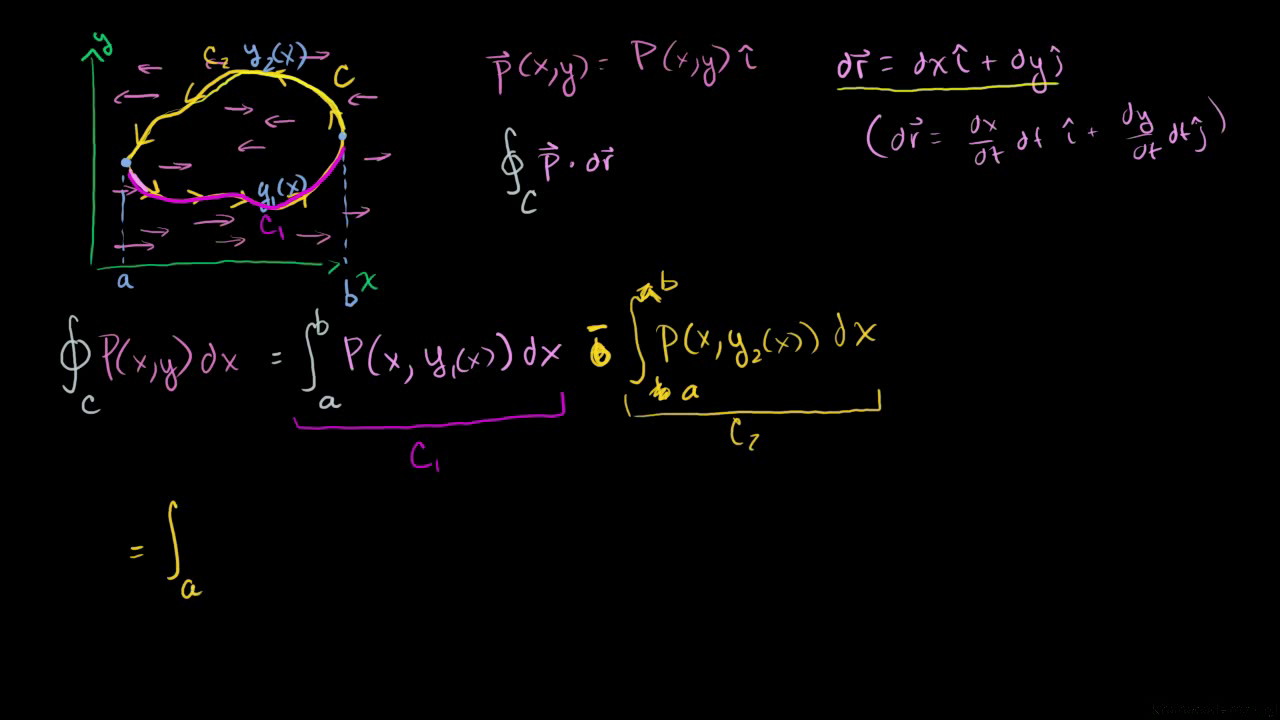 y
C₂ y₂(x)
C
y₁(x)
C₁
a
b
x
p⃗(x,y) = P(x,y) î
dr⃗ = dx î + dy ĵ
(dr⃗ = dx/dt dt î + dy/dt dt ĵ)
∮_C p⃗ · dr⃗
∮_C P(x,y) dx = ∫_a^b P(x, y₁(x)) dx − ∫_a^b P(x, y₂(x)) dx
C₁
C₂
= ∫_a